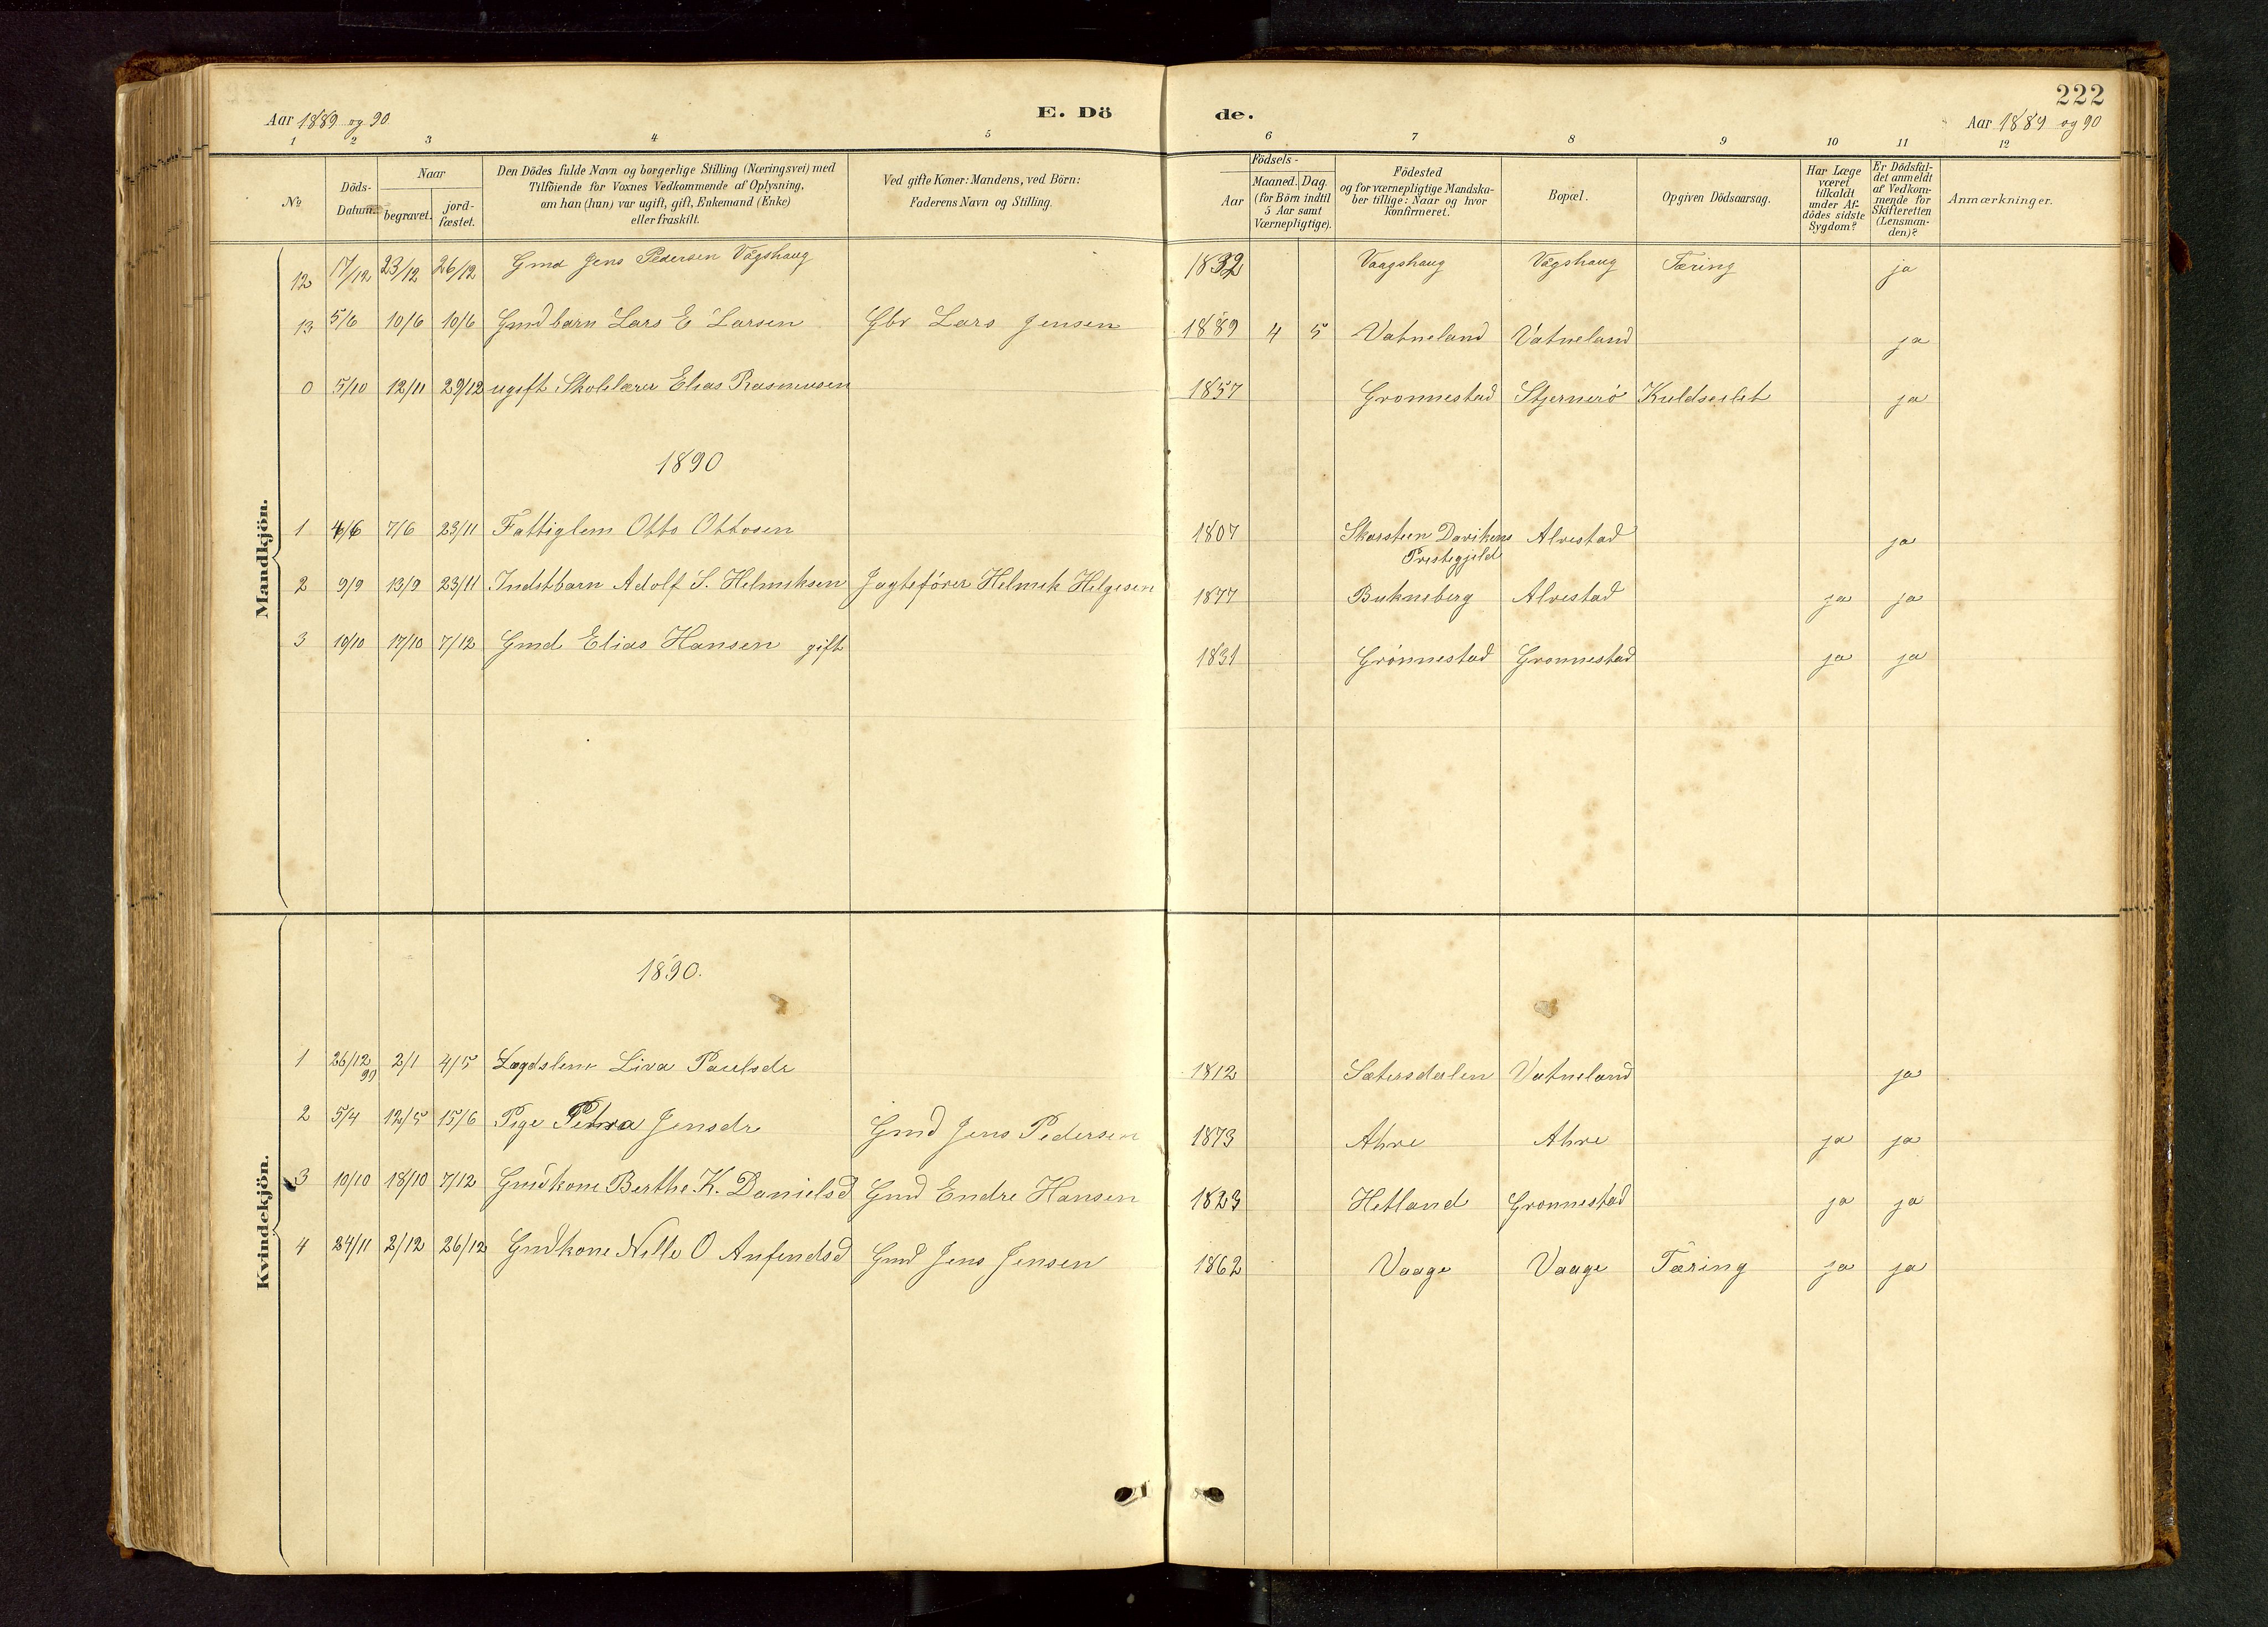 222
Aar 1889 og 90
E. Dö
de.
Aar 1889 og 90
1 2 3 4 5 6 7 8 9 10 11 12
No
Döds-
Datum.
Naar
begravet.
jord-
fæstet.
Den Dödes fulde Navn og borgerlige Stilling (Næringsvei) med
Tilföiende for Voxnes Vedkommende af Oplysning,
om han (hun) var ugift, gift, Enkemand (Enke)
eller fraskilt.
Ved gifte Koner: Mandens, ved Börn:
Faderens Navn og Stilling.
Födsels-
Aar
Maaned. Dag.
(for Börn indtil
5 Aar samt
Værnepligtige).
Födested
og for værnepligtige Mandska-
ber tillige: Naar og hvor
konfirmeret.
Bopæl.
Opgiven Dödsaarsag.
Har Læge
været
tilkaldt
under Af-
dödes sidste
Sygdom?
Er Dödsfal-
det anmeldt
af Vedkom-
mende for
Skifteretten
(Lensman-
den)?
Anmærkninger.
Mandkjön.
12 17/12 23/12 26/12 Gmd Jens Pedersen Vågshaug 1832 Vaagshaug Vågshaug Tæring ja
13 5/6 10/6 10/6 Gmdbarn Lars E Larsen Gbr Lars Jensen 1889 4 5 Vatneland Vatneland ja
0 5/10 12/11 29/12 ugift Skolelærer Elias Rasmusen 1857 Gronnestad Stjernerö Kuldseilet ja
1890
1 4/6 7/6 23/11 Fattiglem Otto Ottosen 1807 Skarsteen Davikens Alvestad ja
Prestegjeld
2 9/9 13/9 23/11 Indstbarn Adolf S. Helmiksen Jagtefører Helmik Helgesen 1877 Bukneberg Alvestad ja ja
3 10/10 17/10 7/12 Gmd Elias Hansen gift 1831 Grönnestad Gronnestad ja ja
Kvindekjön.
1890.
1 26/12 2/1 4/5 Lægdslem Liva Paulsdr 1812 Sætersdalen Vatneland ja
90
2 5/4 12/5 15/6 Pige Petra Jensdr Gmd Jens Pedersen 1873 Ahre Ahre ja ja
3 10/10 18/10 7/12 Gmdkone Berthe K. Danielsd Gmd Endre Hansen 1823 Hetland Gronnestad ja ja
4 24/11 2/12 26/12 Gmdkone Nille O Anfendsd Gmd Jens Jensen 1862 Vaage Vaage Tæring ja ja